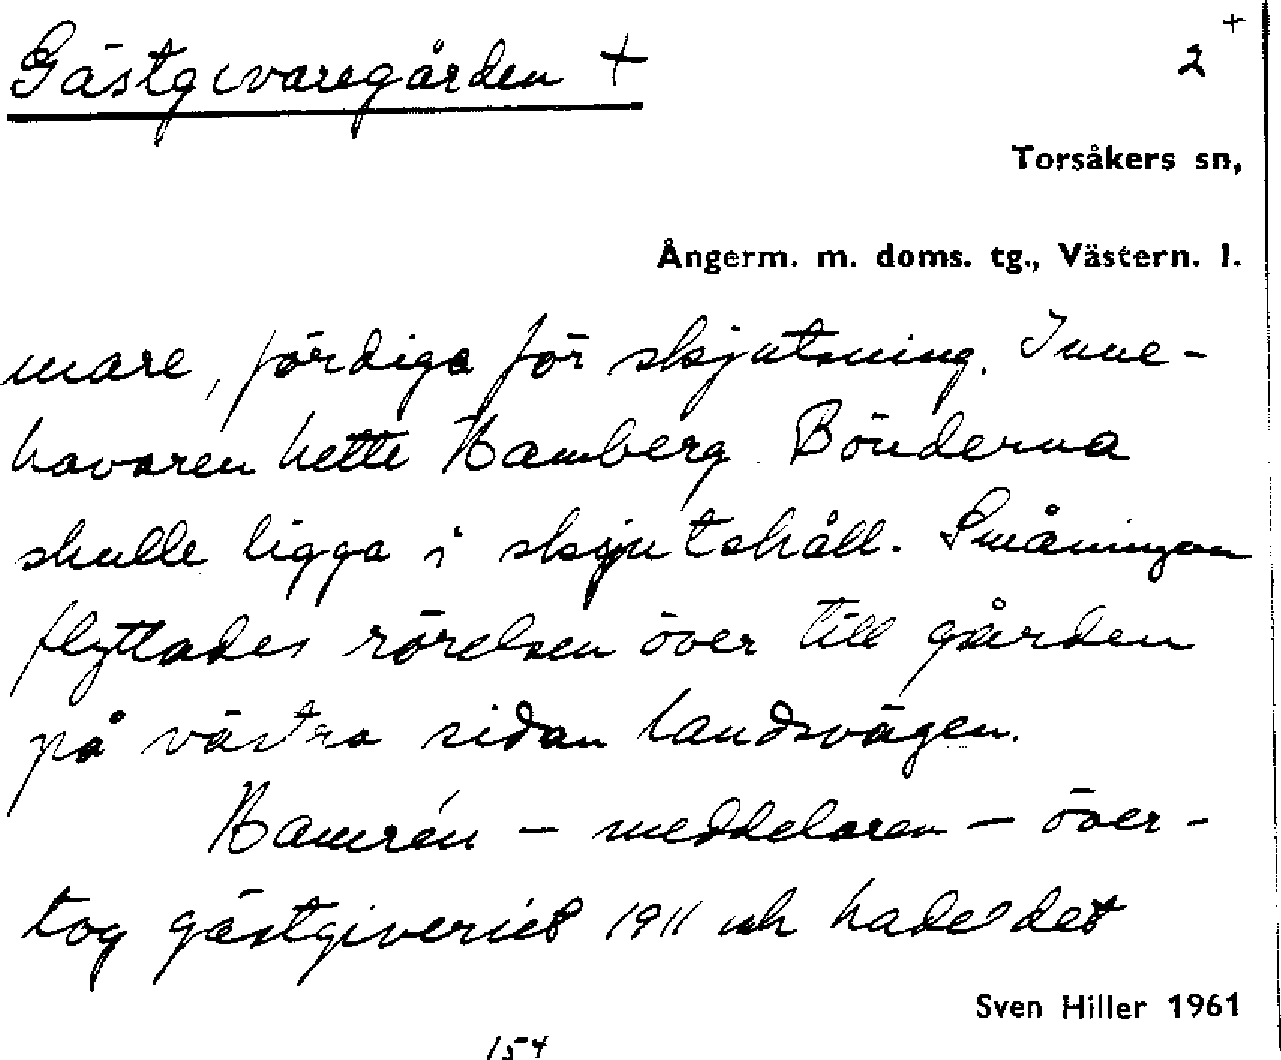 Gästgivaregården +
2 +
Torsåkers sn,
Ångerm. m. doms. tg., Västern. l.
mare, färdiga för skjutsning. Inne-
havaren hette Hamberg. Bönderna
skulle ligga i skjutshåll. Småningom
flyttades rörelsen över till gården
på västra sidan landsvägen.
Hamrén - meddelaren - över-
tog gästgiveriet 1911 och hade det
Sven Hiller 1961
154